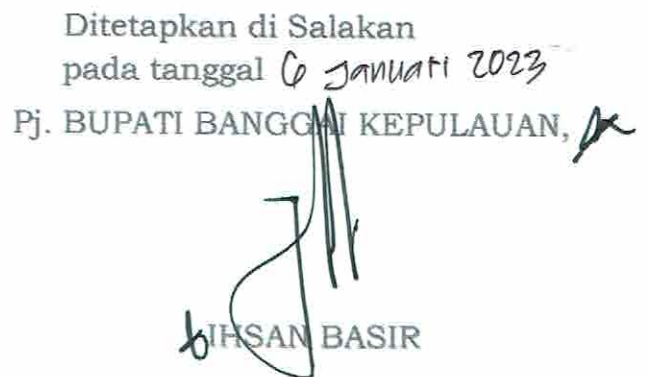 Ditetapkan di Salakan
pada tanggal 6 Januari 2023
Pj. BUPATI BANGGAI KEPULAUAN,
IHSAN BASIR